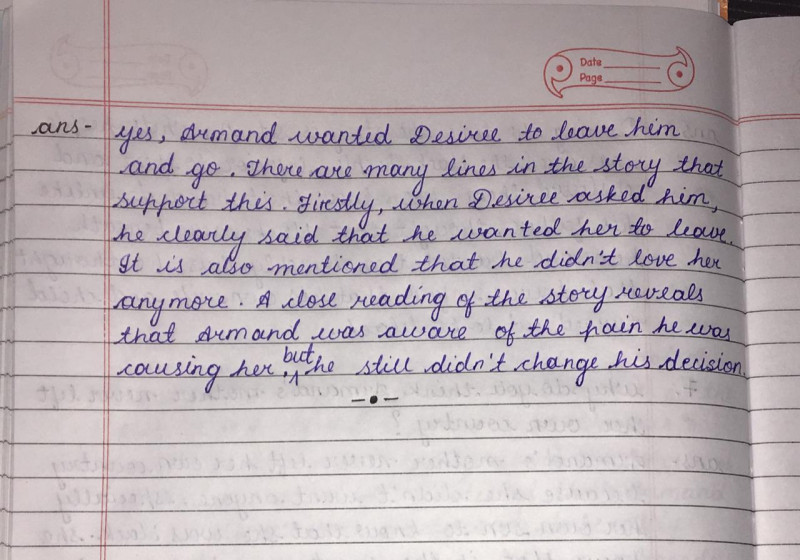 Date
Page
ans- yes, Armand wanted Desiree to leave him
and go. There are many lines in the story that
support this. Firstly, when Desiree asked him,
he clearly said that he wanted her to leave.
It is also mentioned that he didn't love her
anymore. A close reading of the story reveals
that Armand was aware of the pain he was
causing her, but he still didn't change his decision.